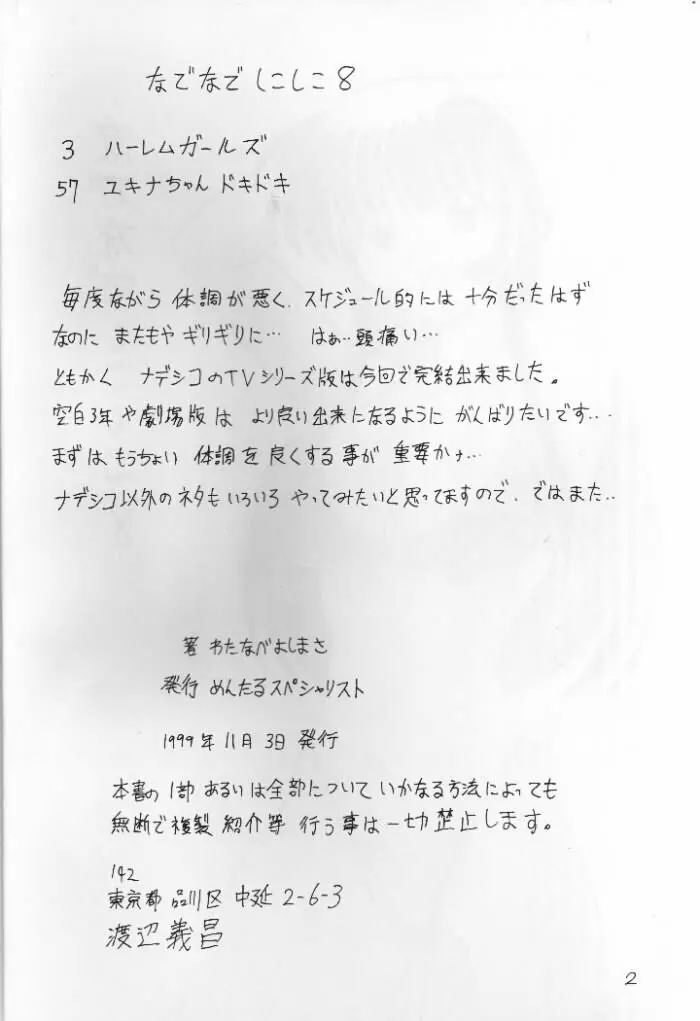 なでなでしこしこ8
3 ハーレムガールズ
57 ユキナちゃんドキドキ
毎度ながら 体調が悪く、スケジュール的には 十分だったはず
なのに またもや ギリギリに… はぁ…頭痛い…
ともかく ナデシコのTVシリーズ版は今回で完結出来ました。
空白3年や劇場版は より良い出来になるように がんばりたいです…
まずは もうちょい 体調を良くする事が 重要かナ…
ナデシコ以外のネタもいろいろ やってみたいと思ってますので、ではまた..
著 わたなべよしまさ
発行 めんたるスペシャリスト
1999年11月3日 発行
本書の1部あるいは全部について いかなる方法によっても
無断で複製 紹介等 行う事は一切禁止します。
142
東京都 品川区 中延 2-6-3
渡辺義昌
2